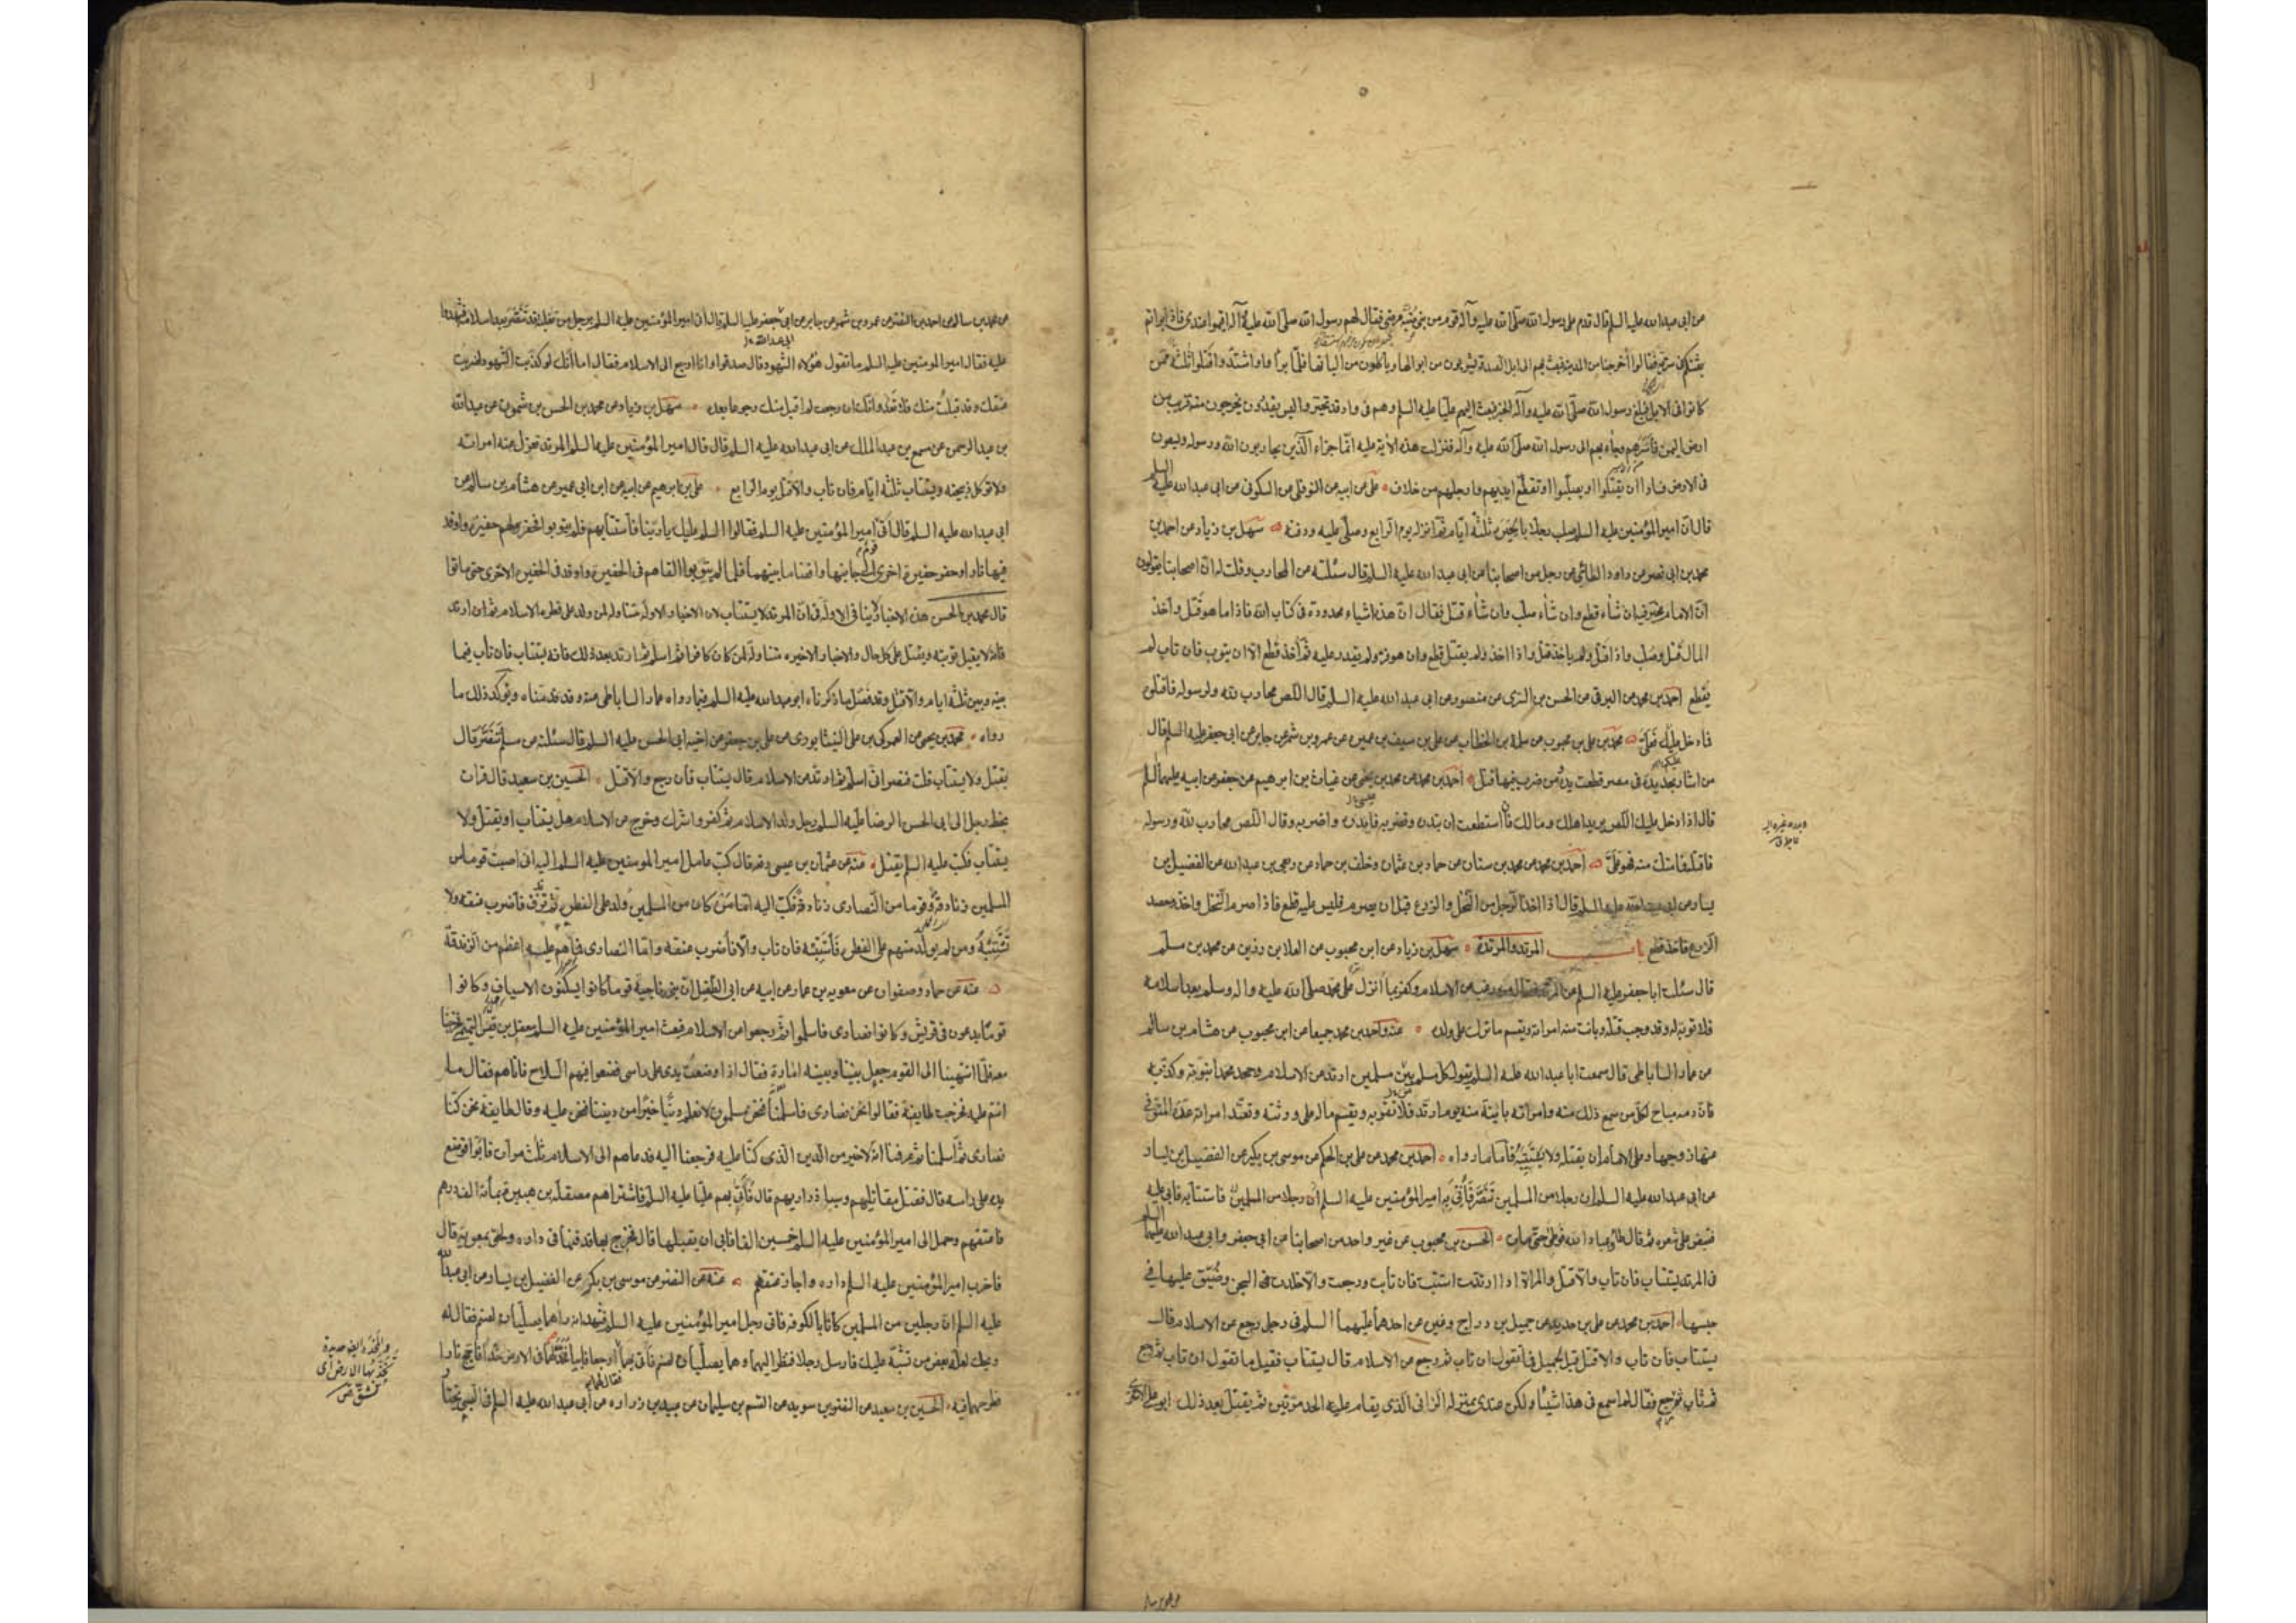 من ابى عبدالله عليه السلم قال قدم على رسول الله صلى الله عليه وآله قوم من بنى ضبة مرضى فقال لهم رسول الله صلى الله عليه وآله اقيموا عندى فاذا برأتم
بعثتكم فى سرية فقالوا أخرجنا من المدينة فبعث بهم الى ابل الصدقة يشربون من ابوالها وياكلون من البانها فلما برأوا واشتدوا قتلوا ثلثة ممن
كانوا فى الابل فبلغ رسول الله صلى الله عليه وآله الخبر فبعث اليهم عليا عليه السلم وهم فى واد قد تحيروا ليس يقدرون يخرجون منه قريب من
ارض اليمن فأسرهم وجاء بهم الى رسول الله صلى الله عليه وآله فنزلت هذه الآية عليه انما جزاء الذين يحاربون الله ورسوله ويسعون
فى الارض فسادا أن يقتلوا او يصلبوا او تقطع ايديهم وارجلهم من خلاف على عن ابيه عن النوفلى عن السكونى عن ابى عبدالله عليه السلم
قال ان امير المؤمنين عليه السلم صلب رجلا بالحيرة ثلثة ايام ثم انزله يوم الرابع وصلى عليه ودفنه سهل بن زياد عن احمد بن
محمد بن ابى نصر عن داود الطائى عن رجل من اصحابنا عن ابى عبدالله عليه السلم قال سئلته عن المحارب وقلت له ان اصحابنا يقولون
ان الامام مخير فيه ان شاء قطع وان شاء صلب وان شاء قتل فقال ان هذه اشياء محدودة فى كتاب الله فاذا ما هو قتل واخذ
المال قتل وصلب واذا قتل ولم ياخذ قتل واذا اخذ ولم يقتل قطع وان هو فر ولم يقدر عليه ثم أخذ قطع الا ان يتوب فان تاب لم
يقطع احمد بن محمد عن البرقى عن الحسن بن السرى عن منصور عن ابى عبدالله عليه السلم قال اللص محارب لله ولرسوله فاقتلوه
فما دخل عليك فعلى محمد بن على بن محبوب عن سلمة بن الخطاب عن على بن سيف بن عميرة عن عمرو بن شمر عن جابر عن ابى جعفر عليه السلم قال
من اشار بحديدة فى مصر قطعت يده ومن ضرب فيها قتل احمد بن محمد عن محمد بن يحيى عن غياث بن ابرهيم عن جعفر عن ابيه عليهما السلم
قال اذا دخل عليك اللص يريد اهلك ومالك فان استطعت ان تبدره وتضربه فابدره واضربه وقال اللص محارب لله ورسوله
فاقتله فما مسك منه فهو على احمد بن محمد عن محمد بن سنان عن حماد بن عثمان وخلف بن حماد عن ربعى بن عبدالله عن الفضيل بن
يسار عن ابى عبدالله عليه السلم قال اذا اخذ الرجل من النخل والزرع قبل ان يصرم فليس عليه قطع فاذا صرم النخل واخذ وحصد
الزرع فاخذ قطع باب المرتد والمرتدة سهل بن زياد عن ابن محبوب عن العلا بن رزين عن محمد بن مسلم
قال سئلت اباجعفر عليه السلم عن المرتد فقال من رغب عن الاسلام وكفر بما أنزل على محمد صلى الله عليه واله وسلم بعد اسلامه
فلا توبة له وقد وجب قتله وبانت منه امراته ويقسم ما ترك على ولده عنه واحمد بن محمد جميعا عن ابن محبوب عن هشام بن سالم
عن عمار الساباطى قال سمعت اباعبدالله عليه السلم يقول كل مسلم بين مسلمين ارتد عن الاسلام وجحد محمدا نبوته وكذبه
فان دمه مباح لكل من سمع ذلك منه وامراته باينة منه يوم ارتد فلا تقربه ويقسم ماله على ورثته وتعتد امراته عدة المتوفى
عنها زوجها وعلى الامام ان يقتله ولا يستتيبه فاما ما رواه احمد بن محمد عن على بن الحكم عن موسى بن بكر عن الفضيل بن يسار
عن ابى عبدالله عليه السلم ان رجلا من المسلمين تنصر فأتى به امير المؤمنين عليه السلم فاستتابه فابى عليه
فقبض على شعره ثم قال طئوا عباد الله فوطئ حتى مات الحسن بن محبوب عن غير واحد من اصحابنا عن ابى جعفر وابى عبدالله عليهما السلم
فى المرتد يستتاب فان تاب والا قتل والمراة اذا ارتدت استتيبت فان تابت ورجعت والا خلدت فى السجن وضيق عليها فى
حبسها احمد بن محمد عن على بن حديد عن جميل بن دراج وغيره عن احدهما عليهما السلم فى رجل رجع عن الاسلام قال
يستتاب فان تاب والا قتل قيل لجميل فما تقول ان تاب ثم رجع عن الاسلام قال يستتاب فقيل ما تقول ان تاب ثم رجع
ثم تاب ثم رجع فقال لم اسمع فى هذا شيئا ولكن عندى بمنزلة الزانى الذى يقام عليه الحد مرتين ثم يقتل بعد ذلك ابوعلى الاشعرى
عن محمد بن سالم عن احمد بن النضر عن عمرو بن شمر عن جابر عن ابى جعفر عليه السلم قال أن امير المؤمنين عليه السلم برجل من ثعلبة قد تنصر بعد اسلامه فشهدوا
ابى عبدالله
عليه فقال امير المومنين عليه السلم ما تقول هؤلاء الشهود قال صدقوا وانا ارجع الى الاسلام فقال اما انك لو كذبت الشهود لضربت
عنقك وقد قبلت منك فلا تعد وانك ان رجعت لم اقبل منك رجوعا بعده سهل بن زياد عن محمد بن الحسن بن شمون عن عبدالله
بن عبدالرحمن عن مسمع بن عبدالملك عن ابى عبدالله عليه السلم قال قال امير المؤمنين عليه السلم المرتد تعزل عنه امراته
ولا توكل ذبيحته ويستتاب ثلثة ايام فان تاب والا قتل يوم الرابع على بن ابرهيم عن ابيه عن ابن ابى عمير عن هشام بن سالم عن
ابى عبدالله عليه السلم قال أتى قوم امير المؤمنين عليه السلم فقالوا السلم عليك يا ربنا فأستتابهم فلم يتوبوا فحفر لهم حفيرة واوقد
فيها نارا وحفر حفيرة اخرى الى جانبها وافضا ما بينهما فلما لم يتوبوا القاهم فى الحفيرة واوقد فى الحفيرة الاخرى حتى ماتوا
قال محمد بن الحسن هذه الاخبار لا ينافى الاولة فى ان المرتد لا يستتاب لان الاخبار الاولة متناولة لمن ولد على فطرة الاسلام ثم ان ارتد
فانه لا يقبل توبته ويقتل على كل حال والاخبار الاخيره متناولة لمن كان كافرا ثم اسلم ثم ارتد بعد ذلك فانه يستتاب فان تاب فيما
بينه وبين ثلثة ايام والا قتل وقد فصل ما ذكرناه ابوعبدالله عليه السلم فيما رواه عمار الساباطى عنه وقد قدمناه ويوكد ذلك ما
رواه محمد بن يحيى عن العمركى بن على النيشابورى عن على بن جعفر عن اخيه ابى الحسن عليه السلم قال سئلته عن مسلم تنصر قال
يقتل ولا يستتاب قلت فنصرانى اسلم ثم ارتد عن الاسلام قال يستتاب فان رجع والا قتل الحسين بن سعيد قال قرات
بخط رجل الى ابى الحسن الرضا عليه السلم رجل ولد على الاسلام ثم كفر واشرك وخرج من الاسلام هل يستتاب او يقتل ولا
يستتاب فكتب عليه السلم يقتل عنه عن عثمان بن عيسى رفعه قال كتب عامل امير المومنين عليه السلم اليه انى اصبت قوما من
المسلمين زنادقة وقوما من النصارى زنادقة فكتب اليه اما من كان من المسلمين ولد على الفطرة ثم تزندق فأضرب عنقه ولا
تستتبه ومن لم يولد منهم على الفطرة فأستتبه فان تاب والا فأضرب عنقه واما النصارى فما هم عليه اعظم من الزندقة
عنه عن حماد وصفوان عن معويه بن عمار عن ابيه عن ابى الطفيل ان بنى ناجية قوما كانوا يسكنون الاسياف وكانوا
قوما يدعون فى قريش وكانوا نصارى فاسلموا ثم رجعوا عن الاسلام فبعث امير المؤمنين عليه السلم معقل بن قيس التميمى فخرجنا
معه فلما انتهينا الى القوم جعل بيننا وبينه امارة فقال اذا وضعت يدى على راسى فضعوا فيهم السلاح فاتاهم فقال ما
انتم عليه فخرجت طايفة فقالوا نحن نصارى فاسلمنا فنحن مسلمون لا نعلم دينا خيرا من ديننا فنحن عليه وقال طايفة نحن كنا
نصارى ثم أسلمنا ثم عرفنا انه لا خير من الدين الذى كنا عليه فرجعنا اليه فدعاهم الى الاسلام ثلث مرات فابوا فوضع
يده على راسه قال فقتل مقاتليهم وسبا ذراريهم قال فأتى بهم عليا عليه السلم فاشتراهم مصقلة بن هبيرة بمأة الف درهم
فاعتقهم وحمل الى امير المؤمنين عليه السلم خمسين الفا فابى ان يقبلها قال فخرج بها فدفنها فى داره ولحق بمعوية قال
فاخرب امير المؤمنين عليه السلم داره واجاز عتقهم عنه عن النضر عن موسى بن بكر عن الفضيل بن يسار عن ابى عبدالله
عليه السلم ان رجلين من المسلمين كانا بالكوفة فاتى رجل امير المؤمنين عليه السلم فشهد انه راهما يصليان لصنم فقال له
ويحك لعله بعض من تشبه عليك فارسل رجلا فنظر اليهما وهما يصليان لصنم فأتى بهما فقال لهما ارجعا فابيا فخد لهما فى الارض خدا فأجج نارا
فطرحهما فيه الحسين بن سعيد عن النضر بن سويد عن القسم بن سليمان عن عبيد بن زراره عن أبى عبدالله عليه السلم فى الصبى يختار